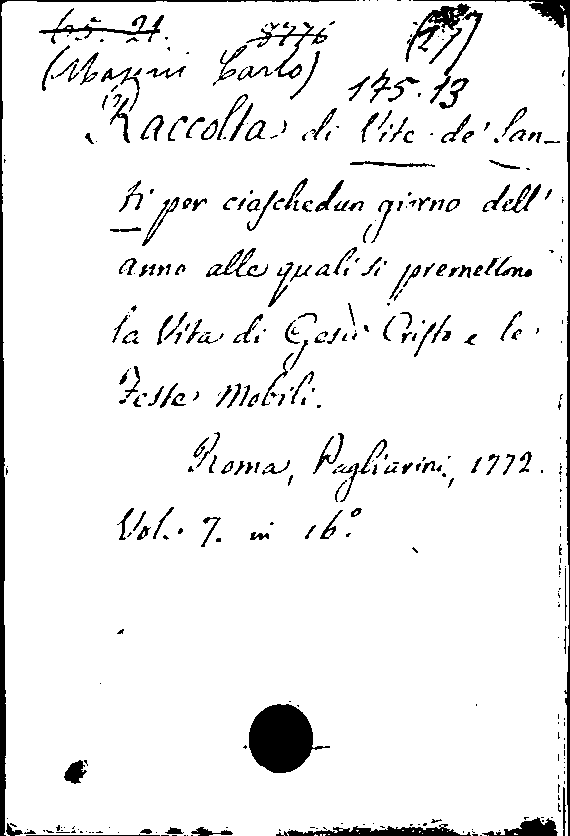 65. 21. 8776 (27)
(Massini Carlo)
175.13
(2)
Raccolta di Vite de' San-
ti per ciaschedun giorno dell'
anno alle quali si premettono
la Vita di Gesù Cristo e le
Feste Mobili.
Roma, Pagliarini, 1772.
Vol. 7. in 16.º